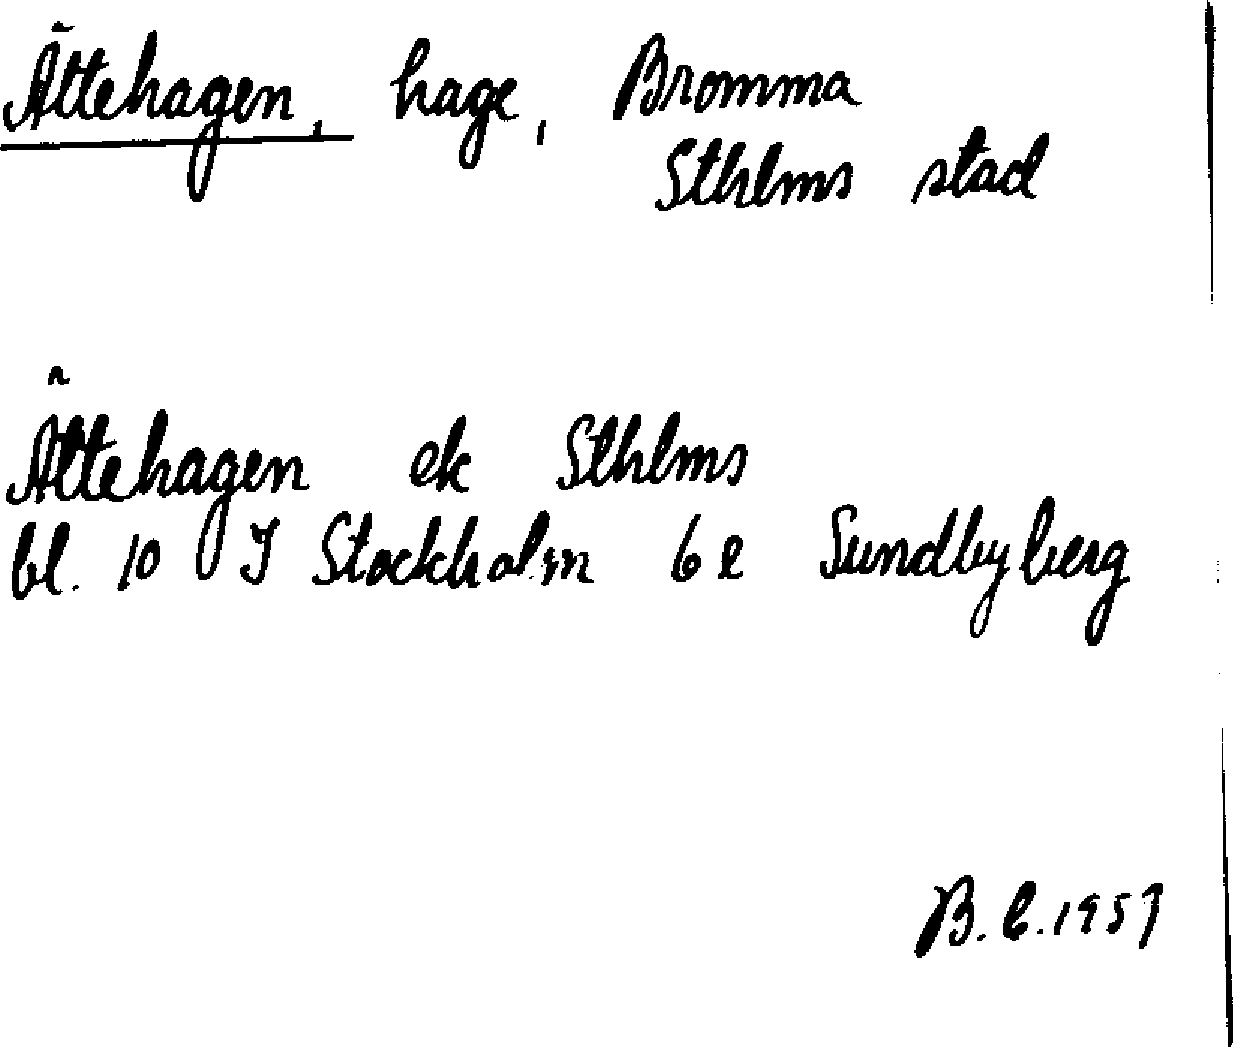 Ättehagen, hage, Bromma
Sthlms stad
Ättehagen ek Sthlms
bl. 10 I Stockholm 6 e Sundbyberg
B. C. 1957